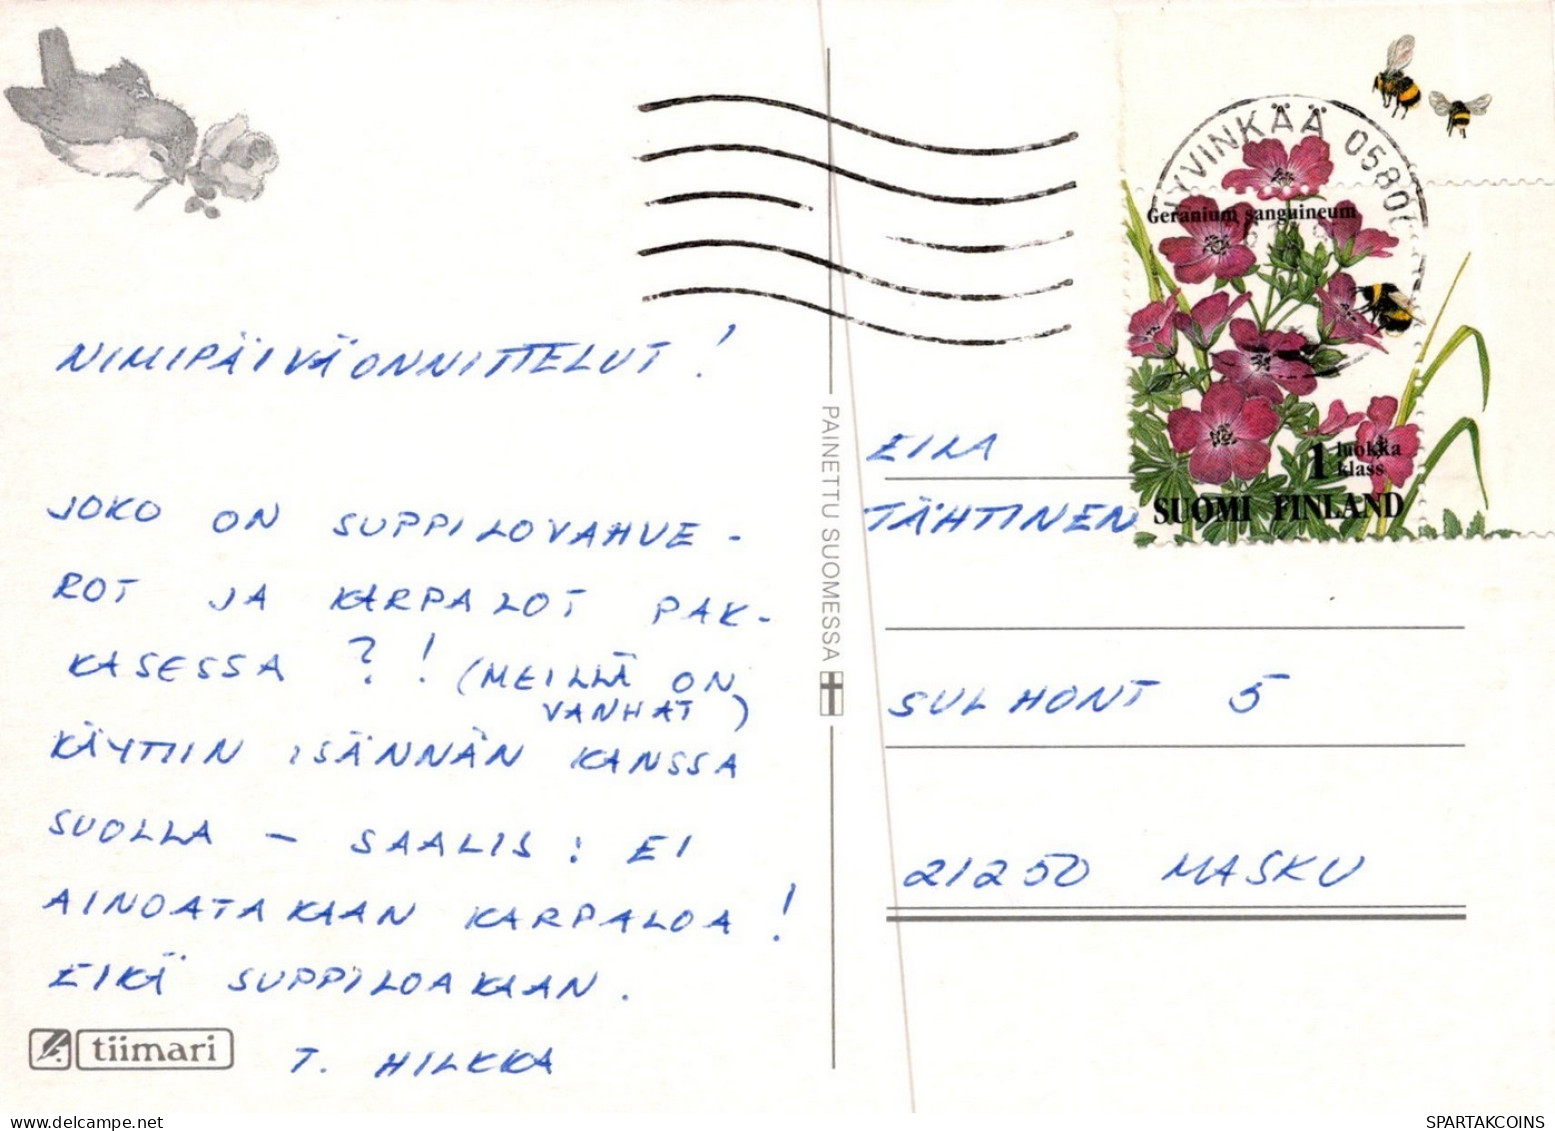 NIMIPÄIVÄONNITTELUT!
JOKO ON SUPPILOVAHVE-
ROT JA KARPALOT PAK-
KASESSA ?! (MEILLÄ ON
VANHAT)
KÄYTIIN ISÄNNÄN KANSSA
SUOLLA – SAALIS: EI
AINOATAKAAN KARPALOA!
EIKÄ SUPPILOAKAAN.
T. HILKKA
tiimari
PAINETTU SUOMESSA
HYVINKÄÄ 05800
Geranium sanguineum
1 luokka
klass
SUOMI FINLAND
EILA
TÄHTINEN
SULHONT 5
21250 MASKU
SPARTAKCOINS